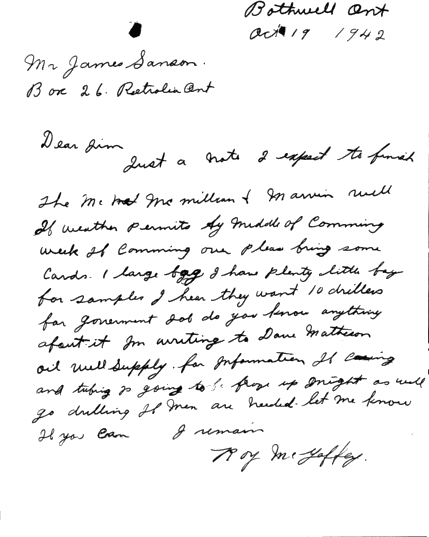 Bothwell Ont
Oct 19 1942
Mr James Sanson.
Box 26. Petrolia Ont
Dear Jim
Just a note I expect to finish
the Mc Mc millian & Marvin well
If weather permits by middle of Comming
week If Comming over pleas bring some
Cards. 1 large bag I have plenty little bags
for samples I hear they want 10 drillers
for goverment Job do you know anything
about it Im writing to Dave Matheson
oil well Supply. for Information If Casing
and tubing is going to be froze up I might as well
go drilling If Men are needed. let me know
If you Can I remain
Roy McGaffey.